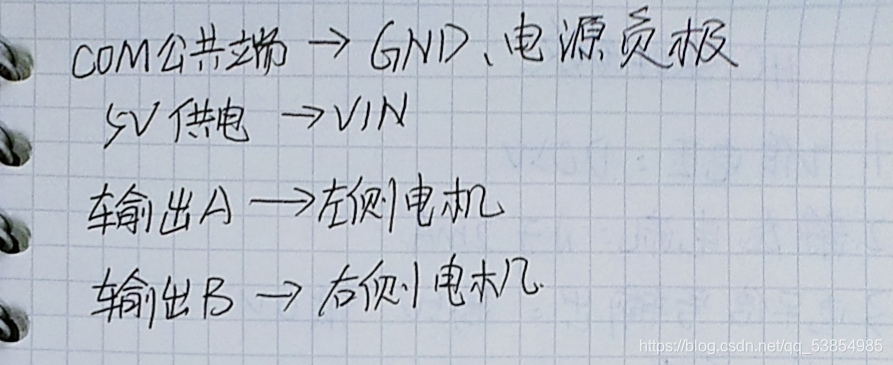 COM公共端 → GND、电源负极
5V供电 → VIN
输出A → 左侧电机
输出B → 右侧电机
https://blog.csdn.net/qq_53854985